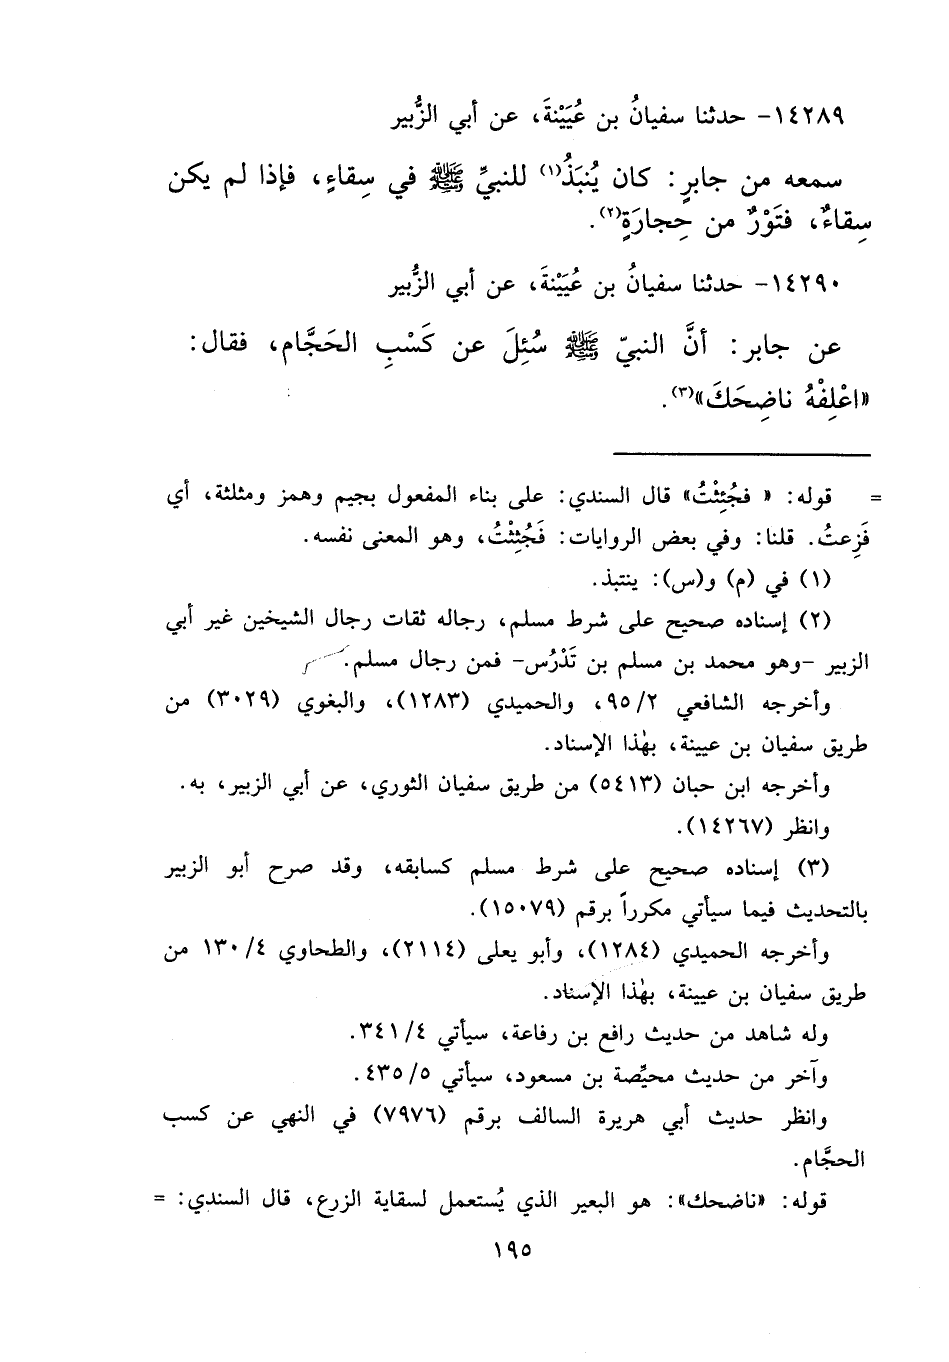 ١٤٢٨٩- حدثنا سفيانُ بن عُيَيْنةَ، عن أبي الزُّبير
سمعه من جابرٍ: كان يُنبَذُ(١) للنبيِّ ﷺ في سِقاءٍ، فإذا لم يكن
سِقاءٌ، فتَوْرٌ من حِجارَةٍ(٢).
١٤٢٩٠- حدثنا سفيانُ بن عُيَيْنةَ، عن أبي الزُّبير
عن جابر: أنَّ النبيّ ﷺ سُئِلَ عن كَسْبِ الحَجَّام، فقال:
«اعْلِفْهُ ناضِحَكَ»(٣).
= قوله: « فجُئِثْتُ» قال السندي: على بناء المفعول بجيم وهمز ومثلثة، أي
فَزِعتُ. قلنا: وفي بعض الروايات: فَجُثِثْتُ، وهو المعنى نفسه.
(١) في (م) و(س): ينتبذ.
(٢) إسناده صحيح على شرط مسلم، رجاله ثقات رجال الشيخين غير أبي
الزبير -وهو محمد بن مسلم بن تَدْرُس- فمن رجال مسلم.
وأخرجه الشافعي ٩٥/٢، والحميدي (١٢٨٣)، والبغوي (٣٠٢٩) من
طريق سفيان بن عيينة، بهٰذا الإسناد.
وأخرجه ابن حبان (٥٤١٣) من طريق سفيان الثوري، عن أبي الزبير، به.
وانظر (١٤٢٦٧).
(٣) إسناده صحيح على شرط مسلم كسابقه، وقد صرح أبو الزبير
بالتحديث فيما سيأتي مكرراً برقم (١٥٠٧٩).
وأخرجه الحميدي (١٢٨٤)، وأبو يعلى (٢١١٤)، والطحاوي ١٣٠/٤ من
طريق سفيان بن عيينة، بهٰذا الإسناد.
وله شاهد من حديث رافع بن رفاعة، سيأتي ٣٤١/٤.
وآخر من حديث محيِّصة بن مسعود، سيأتي ٤٣٥/٥.
وانظر حديث أبي هريرة السالف برقم (٧٩٧٦) في النهي عن كسب
الحجَّام.
قوله: «ناضحك»: هو البعير الذي يُستعمل لسقاية الزرع، قال السندي: =
١٩٥